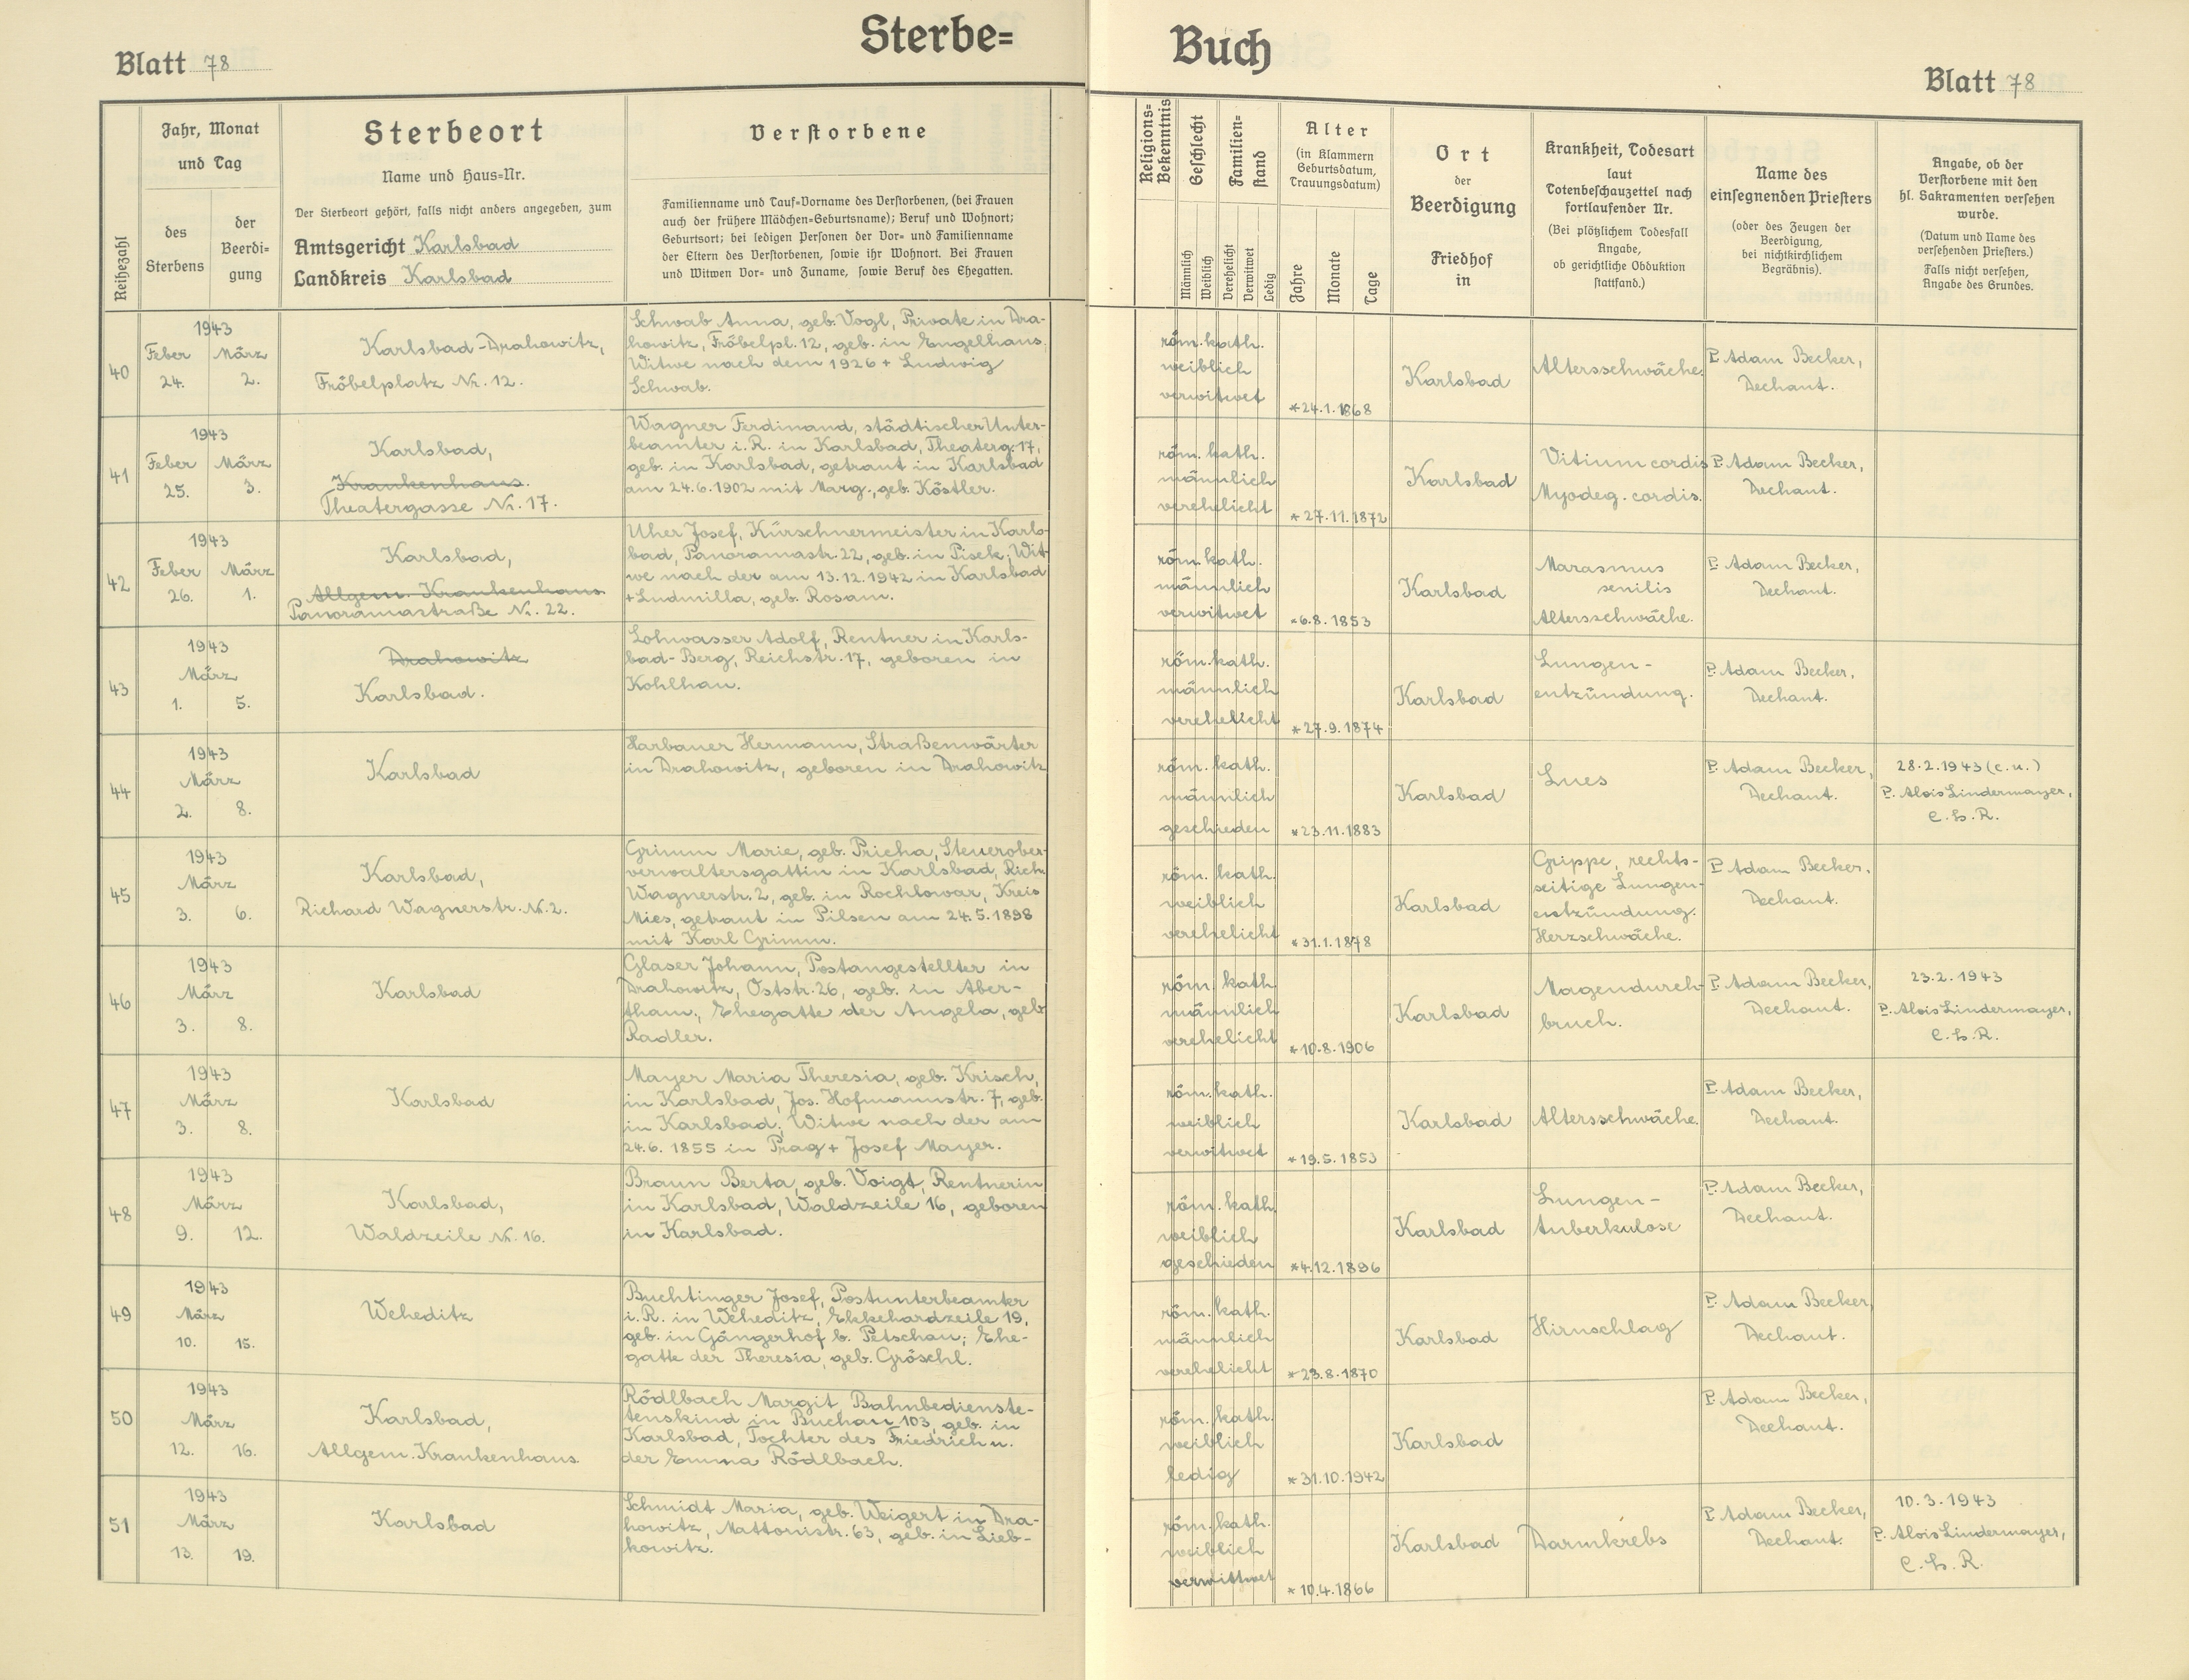 Sterbe=
Buch
Blatt 78
Blatt 78
Reihezahl
Jahr, Monat
und Tag
des
Sterbens
der
Beerdi=
gung
Sterbeort
Name und Haus=Nr.
Der Sterbeort gehört, falls nicht anders angegeben, zum
Amtsgericht Karlsbad
Landkreis Karlsbad
Verstorbene
Familienname und Tauf=Vorname des Verstorbenen, (bei Frauen
auch der frühere Mädchen=Geburtsname); Beruf und Wohnort;
Geburtsort; bei ledigen Personen der Vor= und Familienname
der Eltern des Verstorbenen, sowie ihr Wohnort. Bei Frauen
und Witwen Vor= und Zuname, sowie Beruf des Ehegatten.
Religions=
Bekenntnis
Geschlecht
Männlich
Weiblich
Familien=
stand
Verehelicht
Verwitwet
Ledig
Alter
(in Klammern
Geburtsdatum,
Trauungsdatum)
Jahre
Monate
Tage
Ort
der
Beerdigung
Friedhof
in
Krankheit, Todesart
laut
Totenbeschauzettel nach
fortlaufender Nr.
(Bei plötzlichem Todesfall
Angabe,
ob gerichtliche Obduktion
stattfand.)
Name des
einsegnenden Priesters
(oder des Zeugen der
Beerdigung,
bei nichtkirchlichem
Begräbnis).
Angabe, ob der
Verstorbene mit den
hl. Sakramenten versehen
wurde.
(Datum und Name des
versehenden Priesters.)
Falls nicht versehen,
Angabe des Grundes.
40
1943
Feber März
24. 2.
Karlsbad-Drahowitz,
Fröbelplatz Nr. 12.
Schwab Anna, geb. Vogl, Private in Dra-
howitz, Fröbelpl. 12, geb. in Engelhaus.
Witwe nach dem 1926 + Ludwig
Schwab.
röm. kath.
weiblich
verwitwet
*24.1.1868
Karlsbad
Altersschwäche.
P. Adam Becker,
Dechant.
41
1943
Feber März
25. 3.
Karlsbad,
Krankenhaus.
Theatergasse Nr. 17.
Wagner Ferdinand, städtischer Unter-
beamter i. R. in Karlsbad, Theaterg. 17,
geb. in Karlsbad, getraut in Karlsbad
am 24.6.1902 mit Marg., geb. Köstler.
röm. kath.
männlich
verehelicht
*27.11.1872
Karlsbad
Vitium cordis
Myodeg. cordis.
P. Adam Becker,
Dechant.
42
1943
Feber März
26. 1.
Karlsbad,
Allgem. Krankenhaus.
Panoramastraße Nr. 22.
Uher Josef, Kürschnermeister in Karls-
bad, Panoramastr. 22, geb. in Pisek; Wit-
we nach der am 13.12.1942 in Karlsbad
+ Ludmilla, geb. Rosam.
röm. kath.
männlich
verwitwet
*6.8.1853
Karlsbad
Marasmus
senilis
Altersschwäche.
P. Adam Becker,
Dechant.
43
1943
März
1. 5.
Drahowitz
Karlsbad.
Lohwasser Adolf, Rentner in Karls-
bad-Berg, Reichstr. 17, geboren in
Kohlhau.
röm. kath.
männlich
verehelicht
*27.9.1874
Karlsbad
Lungen-
entzündung.
P. Adam Becker,
Dechant.
44
1943
März
2. 8.
Karlsbad
Harbauer Hermann, Straßenwärter
in Drahowitz, geboren in Drahowitz
röm. kath.
männlich
geschieden
*23.11.1883
Karlsbad
Lues
P. Adam Becker,
Dechant.
28.2.1943 (e.u.)
P. Alois Lindermayer,
C. Ss. R.
45
1943
März
3. 6.
Karlsbad,
Richard Wagnerstr. Nr. 2.
Grimm Marie, geb. Pricha, Steuerober-
verwaltersgattin in Karlsbad, Rich.
Wagnerstr. 2, geb. in Rochlowar, Kreis
Mies, getraut in Pilsen am 24.5.1898
mit Karl Grimm.
röm. kath.
weiblich
verehelicht
*31.1.1878
Karlsbad
Grippe, rechts-
seitige Lungen-
entzündung.
Herzschwäche.
P. Adam Becker.
Dechant.
46
1943
März
3. 8.
Karlsbad
Glaser Johann, Postangestellter in
Drahowitz, Oststr. 26, geb. in Aber-
tham; Ehegatte der Angela, geb.
Radler.
röm. kath.
männlich
verehelicht
*10.8.1906
Karlsbad
Magendurch-
bruch.
P. Adam Becker,
Dechant.
23.2.1943
P. Alois Lindermayer,
C. Ss. R.
47
1943
März
3. 8.
Karlsbad
Mayer Maria Theresia, geb. Krisch,
in Karlsbad, Jos. Hofmannstr. 7, geb.
in Karlsbad; Witwe nach der am
24.6. 1855 in Prag + Josef Mayer.
röm. kath.
weiblich
verwitwet
*19.5.1853
Karlsbad
Altersschwäche.
P. Adam Becker,
Dechant.
48
1943
März
9. 12.
Karlsbad,
Waldzeile Nr. 16.
Braun Berta, geb. Voigt, Rentnerin
in Karlsbad, Waldzeile 16, geboren
in Karlsbad.
röm. kath.
weiblich
geschieden
*4.12.1896
Karlsbad
Lungen-
tuberkulose
P. Adam Becker,
Dechant.
49
1943
März
10. 15.
Weheditz
Buchtinger Josef, Postunterbeamter
i. R. in Weheditz, Ekkehardzeile 19,
geb. in Gängerhof b. Petschau; Ehe-
gatte der Theresia, geb. Gröschl.
röm. kath.
männlich
verehelicht
*29.8.1870
Karlsbad
Hirnschlag
P. Adam Becker,
Dechant.
50
1943
März
12. 16.
Karlsbad,
Allgem. Krankenhaus.
Rödlbach Margit, Bahnbedienste-
tenskind in Buchau 103, geb. in
Karlsbad, Tochter des Friedrich u.
der Emma Rödlbach.
röm. kath.
weiblich
ledig
*31.10.1942
Karlsbad
P. Adam Becker,
Dechant.
51
1943
März
13. 19.
Karlsbad
Schmidt Maria, geb. Weigert in Dra-
howitz, Mattonistr. 63, geb. in Lieb-
kowitz.
röm. kath.
weiblich
verwittwet
*10.4.1866
Karlsbad
Darmkrebs
P. Adam Becker,
Dechant.
10.3.1943
P. Alois Lindermayer,
C. Ss. R.